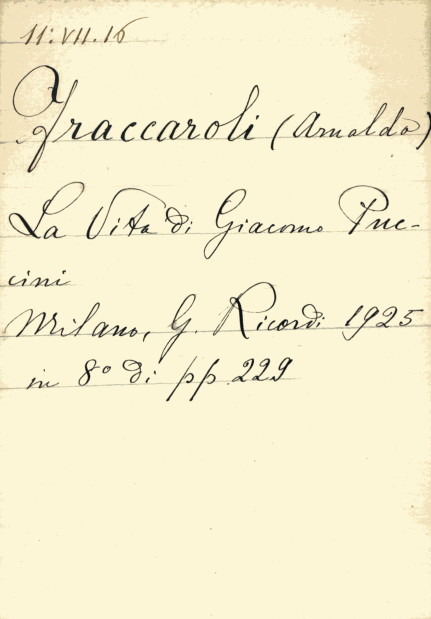 11.VII.16
Fraccaroli (Arnaldo)
La Vita di Giacomo Puc-
cini
Milano, G. Ricordi 1925
in 8º di pp 229